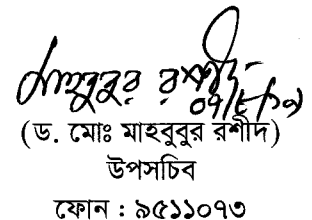 মাহবুবুর রশীদ
(ড. মোঃ মাহবুবুর রশীদ)
উপসচিব
ফোন : ৯৫১১০৭৩